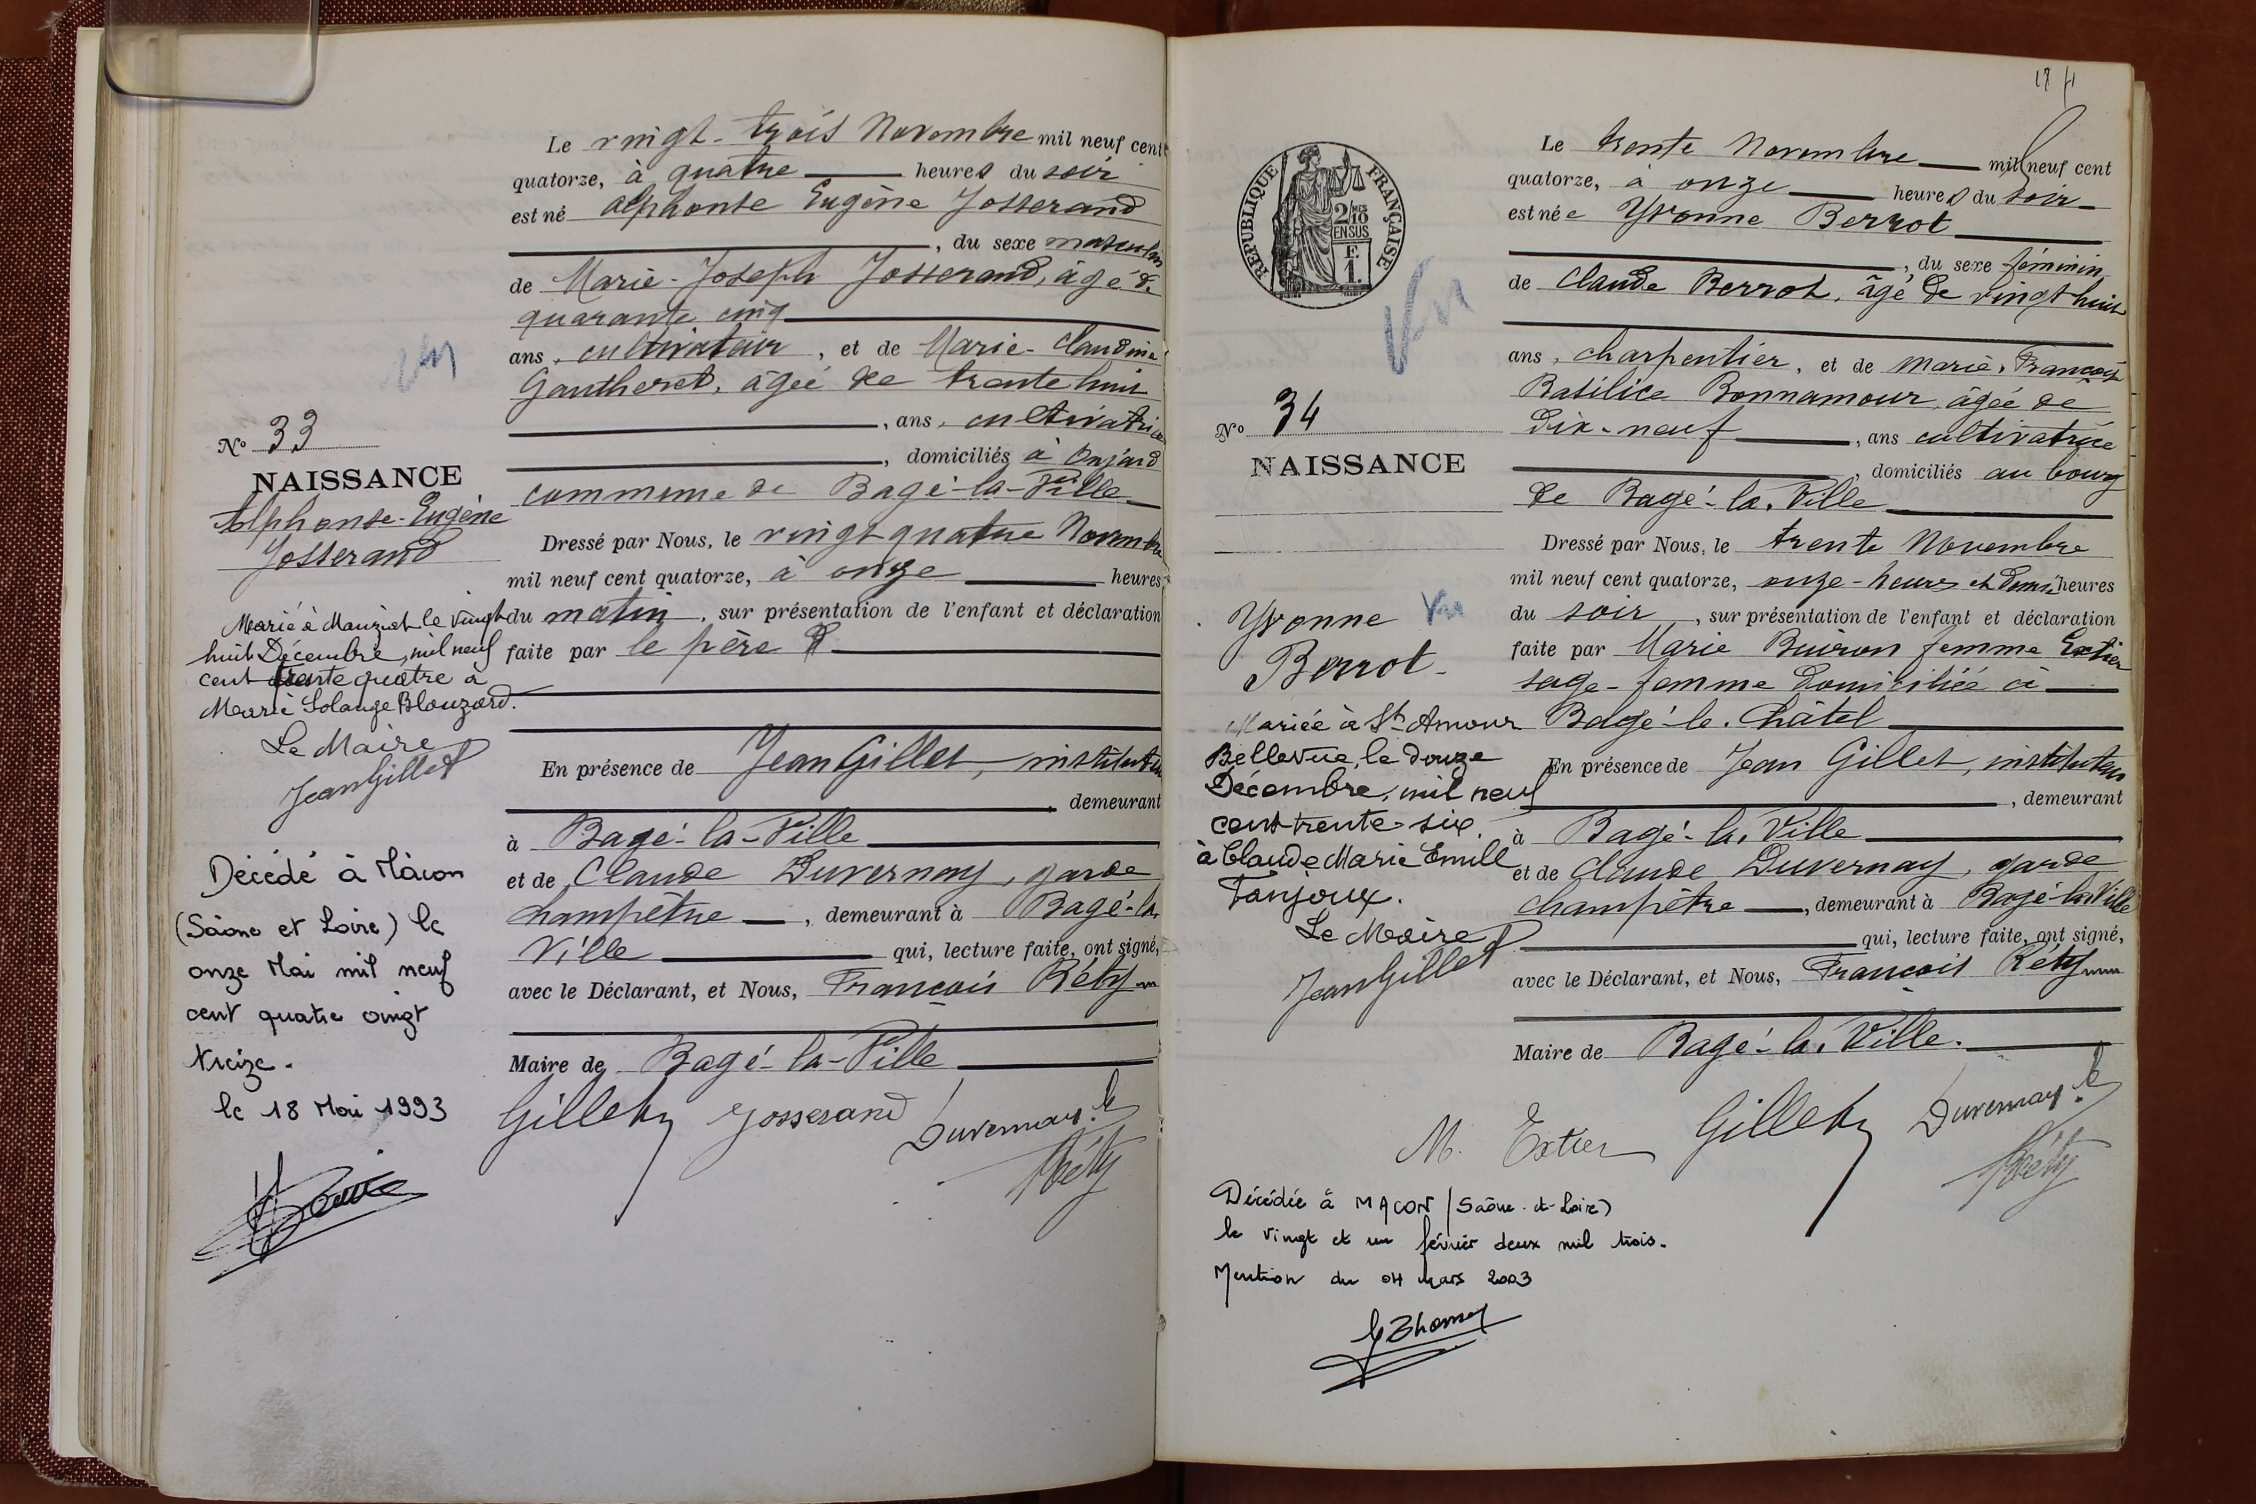 Le vingt-trois Novembre mil neuf cent
quatorze, à quatre heures du soir
est né Alphonse Eugène Josserand
, du sexe masculin
de Marie-Joseph Josserand, âgé de
quarante cinq
ans, cultivateur, et de Marie-Claudine
Gautheret, âgée de trente huit
, ans, cultivatrice
, domiciliés à Onjard
commune de Bagé-la-Ville
N° 33
NAISSANCE
Alphonse-Eugène
Josserand
Dressé par Nous, le vingt quatre Novembre
mil neuf cent quatorze, à onze heures
du matin, sur présentation de l'enfant et déclaration
faite par le père
Marié à Manziat le vingt
huit Décembre, mil neuf
cent trente quatre à
Marie Solange Blouzard.
Le Maire
Jean Gillet
En présence de Jean Gillet, instituteur
demeurant
à Bagé-la-Ville
et de Claude Duvernay, garde
champêtre, demeurant à Bagé-la-
Ville qui, lecture faite, ont signé,
avec le Déclarant, et Nous, François Réty
Maire de Bagé-la-Ville
Gillet Josserand Duvernay
Réty
Décédé à Mâcon
(Saône et Loire) le
onze Mai mil neuf
cent quatre vingt
treize.
le 18 Mai 1993
REPUBLIQUE FRANÇAISE
2/10 EN SUS
Le trente Novembre mil neuf cent
quatorze, à onze heures du soir
est née Yvonne Berrot
, du sexe féminin
de Claude Berrot, âgé de vingt huit
ans, charpentier, et de Marie, Françoise
Basilice Bonnamour, âgée de
dix-neuf, ans cultivatrice
, domiciliés au bourg
de Bagé-la-Ville
Vu
N° 34
NAISSANCE
Yvonne Vu
Berrot.
Dressé par Nous, le trente Novembre
mil neuf cent quatorze, onze-heures et demi heures
du soir, sur présentation de l'enfant et déclaration
faite par Marie Buiron femme Extier
sage-femme domiciliée à
Bagé-le-Châtel
Mariée à St Amour
Bellevue, le douze
Décembre, mil neuf
cent trente-six.
à Claude Marie Emill
Tanjoux.
Le Maire
Jean Gillet
En présence de Jean Gillet, instituteur
, demeurant
à Bagé-la-Ville
et de Claude Duvernay, garde
champêtre, demeurant à Bagé-la-Ville
qui, lecture faite, ont signé,
avec le Déclarant, et Nous, François Réty
Maire de Bagé-la-Ville.
M. Extier Gillet Duvernay
Réty
Décédée à MACON (Saône-et-Loire)
le vingt et un février deux mil trois.
Mention du 04 mars 2003